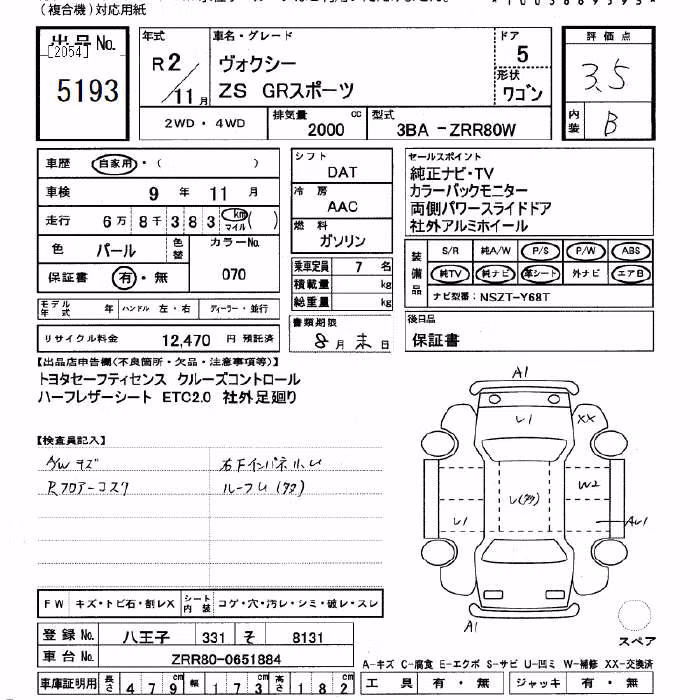 (複合機)対応用紙
出品No.
[2054]
5193
年式
R2/11月
車名・グレード
ヴォクシー
ZS GRスポーツ
ドア
5
形状
ワゴン
評価点
3.5
内装
B
2WD・4WD
排気量
2000 cc
型式
3BA -ZRR80W
車歴 自家用・( )
車検 9年 11月
走行 6万8千383 km マイル( )
色 パール 色替 カラーNo.
保証書 有・無 070
シフト
DAT
冷房
AAC
燃料
ガソリン
乗車定員 7名
積載量 kg
総重量 kg
セールスポイント
純正ナビ・TV
カラーバックモニター
両側パワースライドドア
社外アルミホイール
装備品
S/R 純A/W P/S P/W ABS
純TV 純ナビ 革シート 外ナビ エアB
ナビ型番: NSZT-Y68T
モデル年式 年 ハンドル 左・右 ディーラー・並行
リサイクル料金 12,470 円 預託済
書類期限
8月末日
後日品
保証書
【出品店申告欄(不良箇所・欠品・注意事項等)】
トヨタセーフティセンス クルーズコントロール
ハーフレザーシート ETC2.0 社外足廻り
【検査員記入】
A/Wキズ
Rフロアーコスク
右下インパネ小レ
ルーフレ(タタ)
A1
レ1
XX
W2
レ(タタ)
レ1
A1
スペア
FW キズ・トビ石・割レX シート内装 コゲ・穴・汚レ・シミ・破レ・スレ
登録No. 八王子 331 そ 8131
車台No. ZRR80-0651884
A-キズ C-腐食 E-エクボ S-サビ U-凹ミ W-補修 XX-交換済
車庫証明用 長さ 479cm 幅 173cm 高さ 182cm
工具 有・無 ジャッキ 有・無